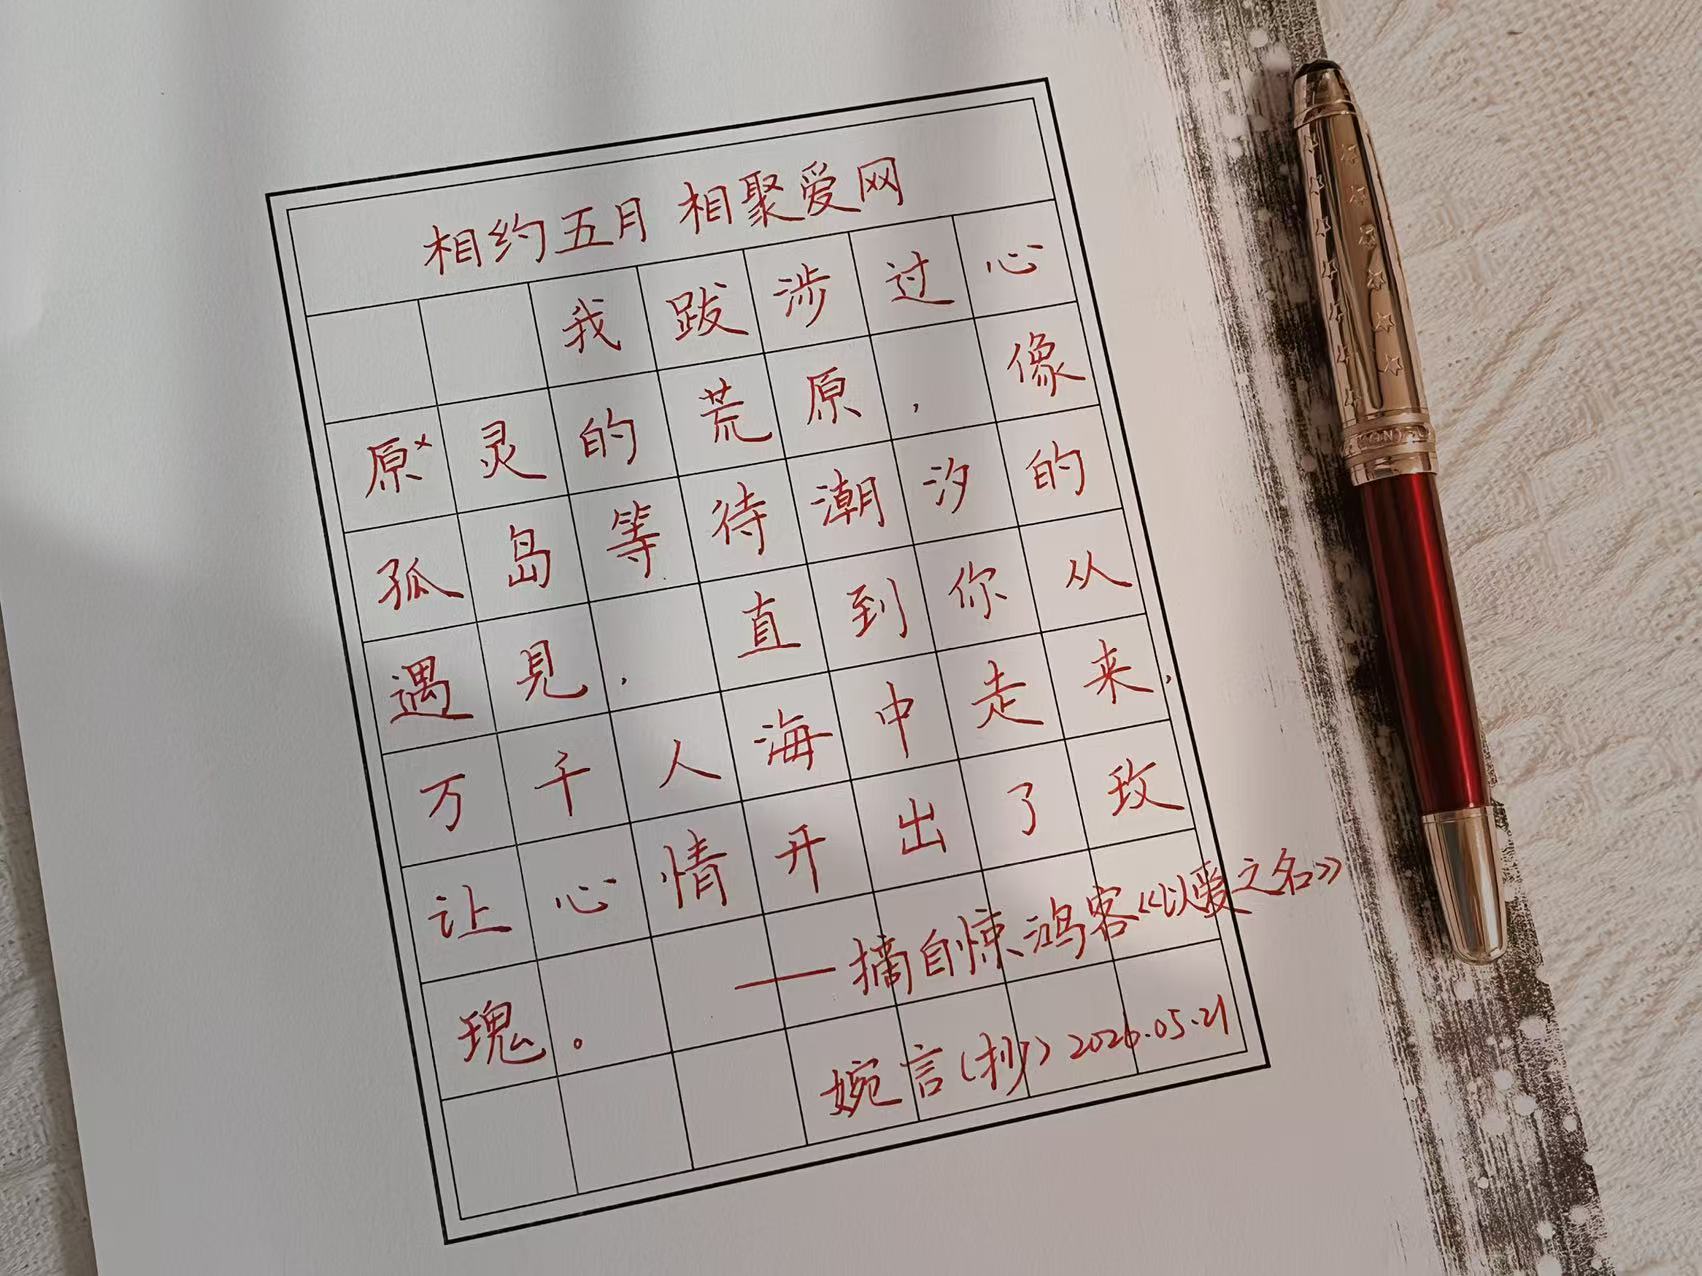 相约五月 相聚爱网
我跋涉过心
原×灵的荒原，像
孤岛等待潮汐的
遇见，直到你从
万千人海中走来，
让心情开出了玫
瑰。
——摘自惊鸿客《以爱之名》
婉言(抄) 2026.05.21